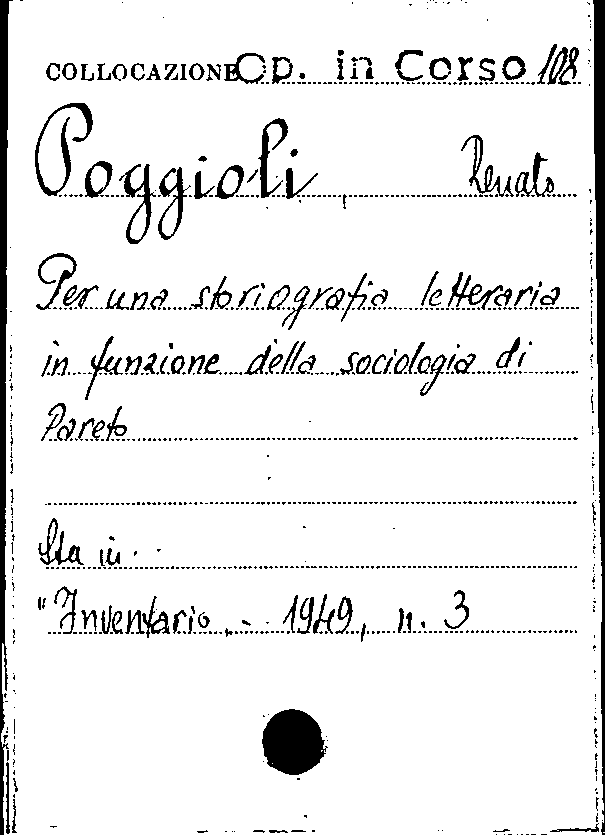 COLLOCAZIONE Op. in Corso 108
Poggioli, Renato
Per una storiografia letteraria
in funzione della sociologia di
Pareto
Sta in..
"Inventario„- 1949, n. 3